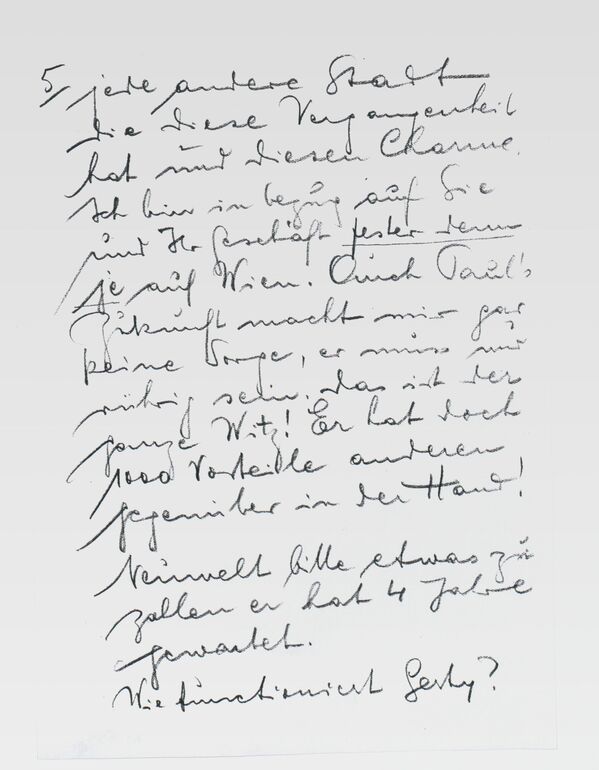 5/ jede andere Stadt
die diese Vergangenheit
hat und diesen Charme.
Ich bin in bezug auf Sie
und Ihr Geschäft fester denn
je auf Wien. Auch Paul's
Zukunft macht mir gar
keine Sorge, er muss nur
rührig sein, das ist der
ganze Witz! Er hat doch
1000 Vorteile anderen
gegenüber in der Hand!
bitte etwas zu
zallen er hat 4 Jahre
gewartet.
Wie functioniert Gerty?